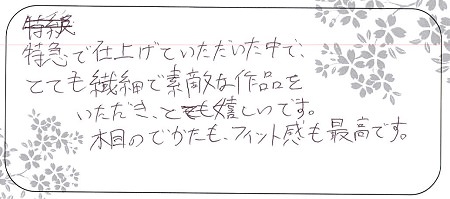 特急で仕上げていただいた中で、
とても繊細で素敵な作品を
いただき、とても嬉しいです。
木目のでかたも、フィット感も最高です。